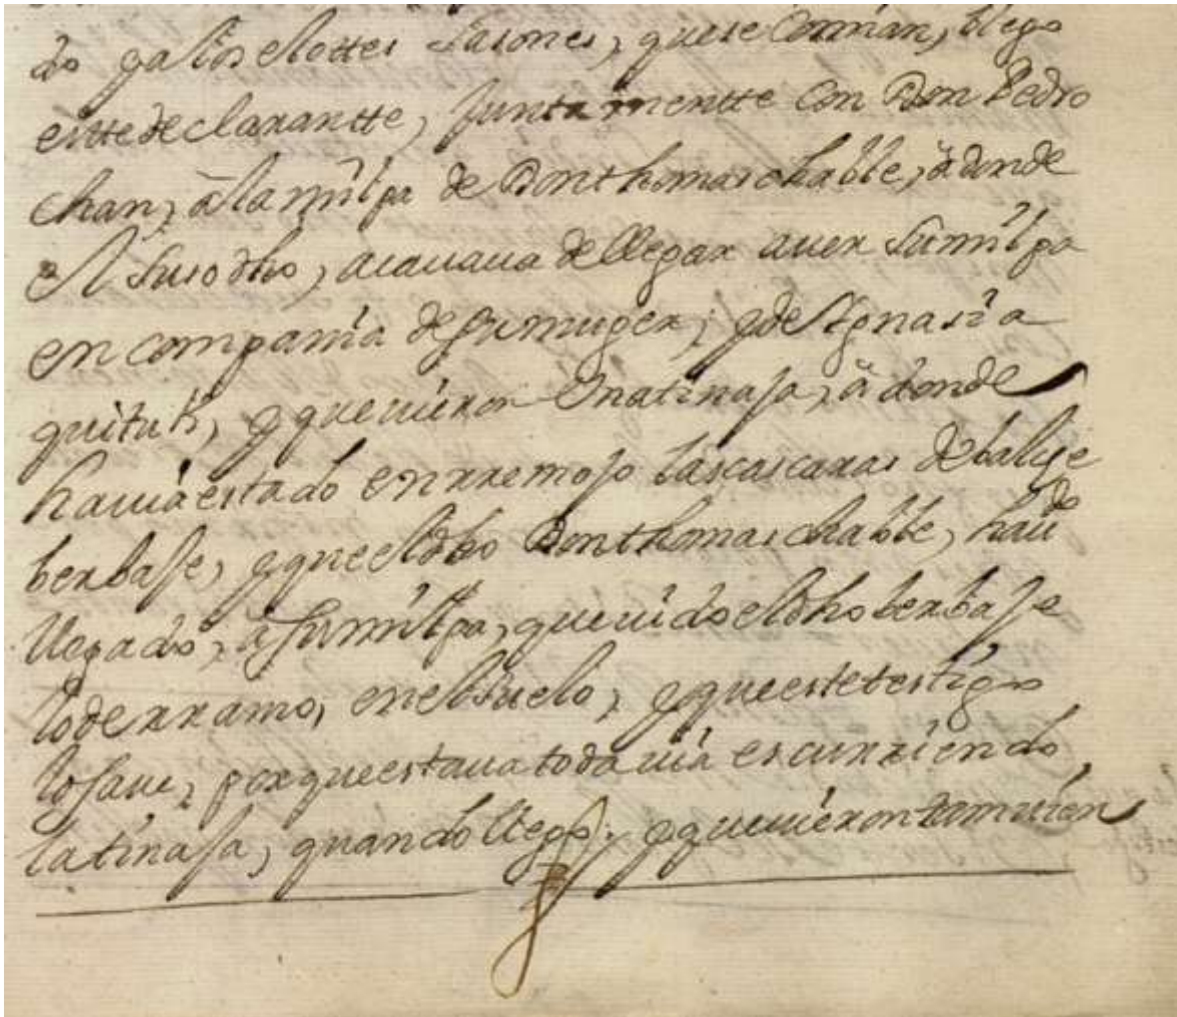 do ya los elottes sasones, que se Comian, llego
este declarantte, Junta mentte Con Don Pedro
chan, â la milpa de Don thomas chable, â donde
el Suso dho, acauaua de llegar auer Su milpa
en compania de su muger, y de Ygnasia
quituk, y que uieron Una tinaja, â donde
hauia estado en rremojo las cascaras de balche
berbaje, y que el dho Don thomas chable, hauido
llegado, â Su milpa, que uido el dho berbaje
lo derramo, en el Suelo, y que este testigo
lo saue, porque estaua toda uia escurriendo,
la tinaja, quando llego; y que uieron tamuien